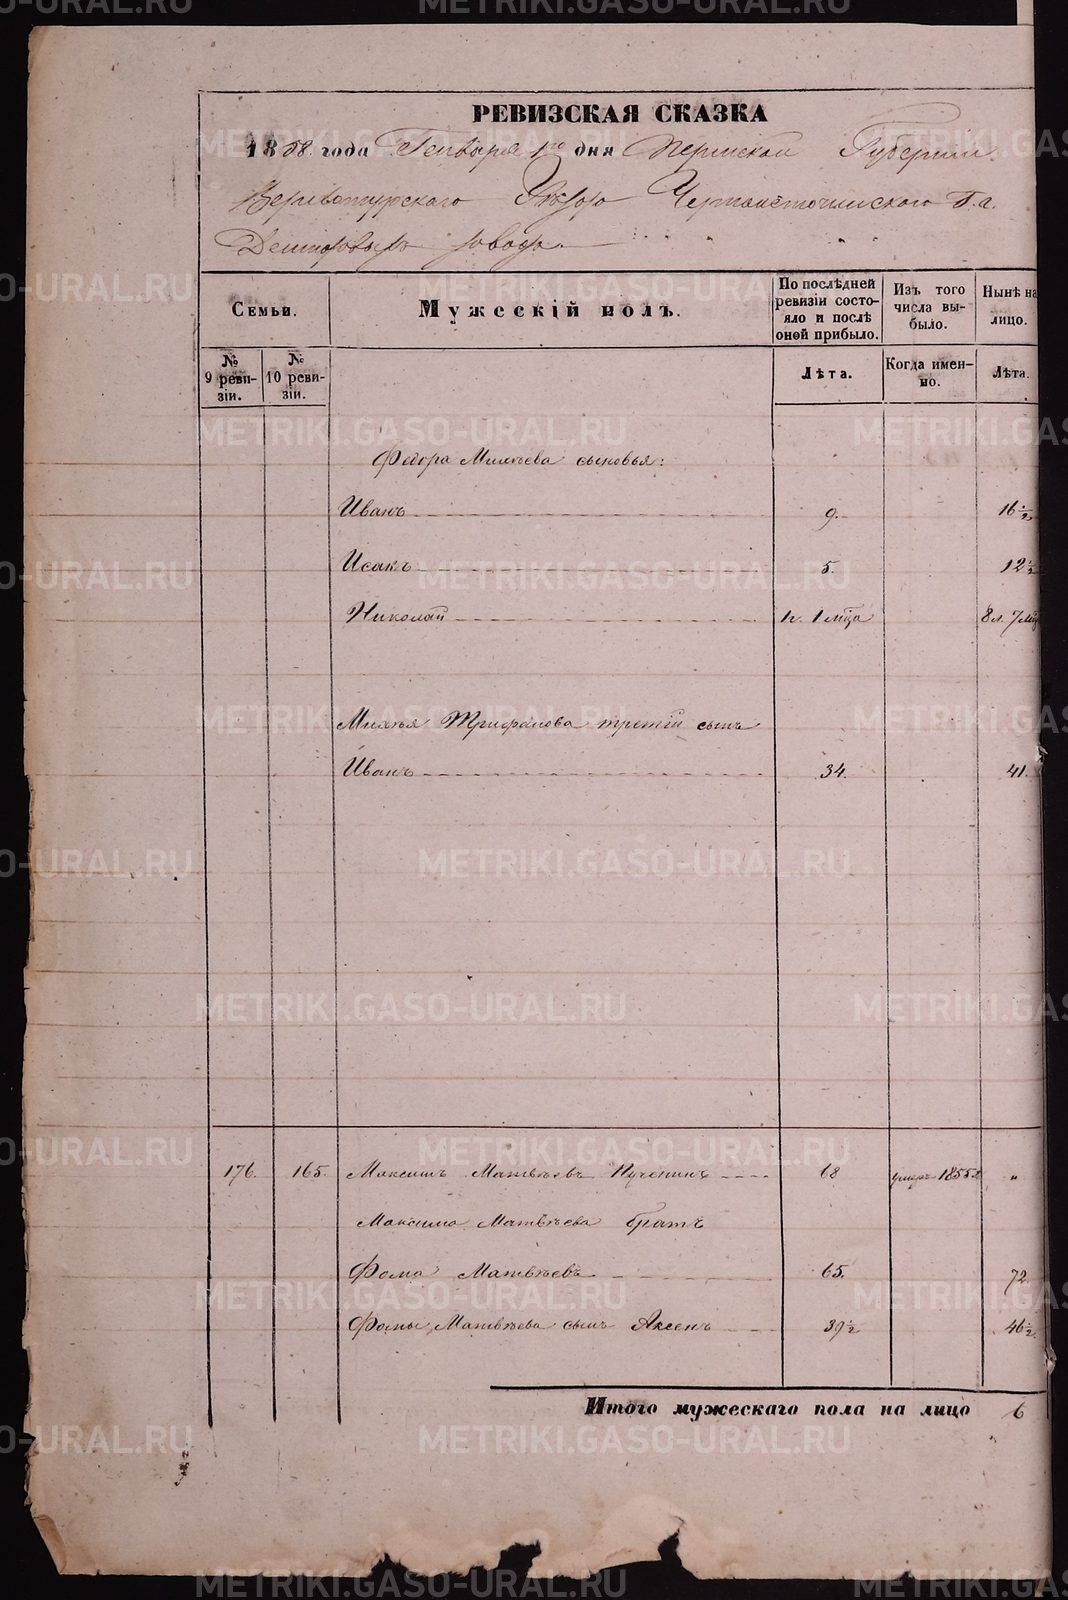 РЕВИЗСКАЯ СКАЗКА
1858 года Генваря 1го дня Пермской Губернии
Верхотурскаго Уезда Черноисточинскаго Г.г.
Демидовыхъ завода.
Семьи.
Мужескій полъ.
По послѣдней ревизіи состояло и послѣ оной прибыло.
Изъ того числа выбыло.
Нынѣ на лицо.
№ 9 ревизіи.
№ 10 ревизіи.
Лѣта.
Когда именно.
Лѣта.
Федора Михѣева сыновья:
Иванъ 9. 16 1/2
Исакъ 5. 12 1/2
Николай н. 1 мца 8 л. 7 м
Михѣя Трифанова третій сынъ
Иванъ 34. 41.
176. 165. Максимъ Матвѣевъ 68 умеръ 1855 "
Максима Матвѣева братъ
Фома Матвѣевъ 65. 72.
Фомы Матвѣева сынъ Аксенъ 39 1/2 46 1/2
Итого мужескаго пола на лицо 6
METRIKI.GASO-URAL.RU